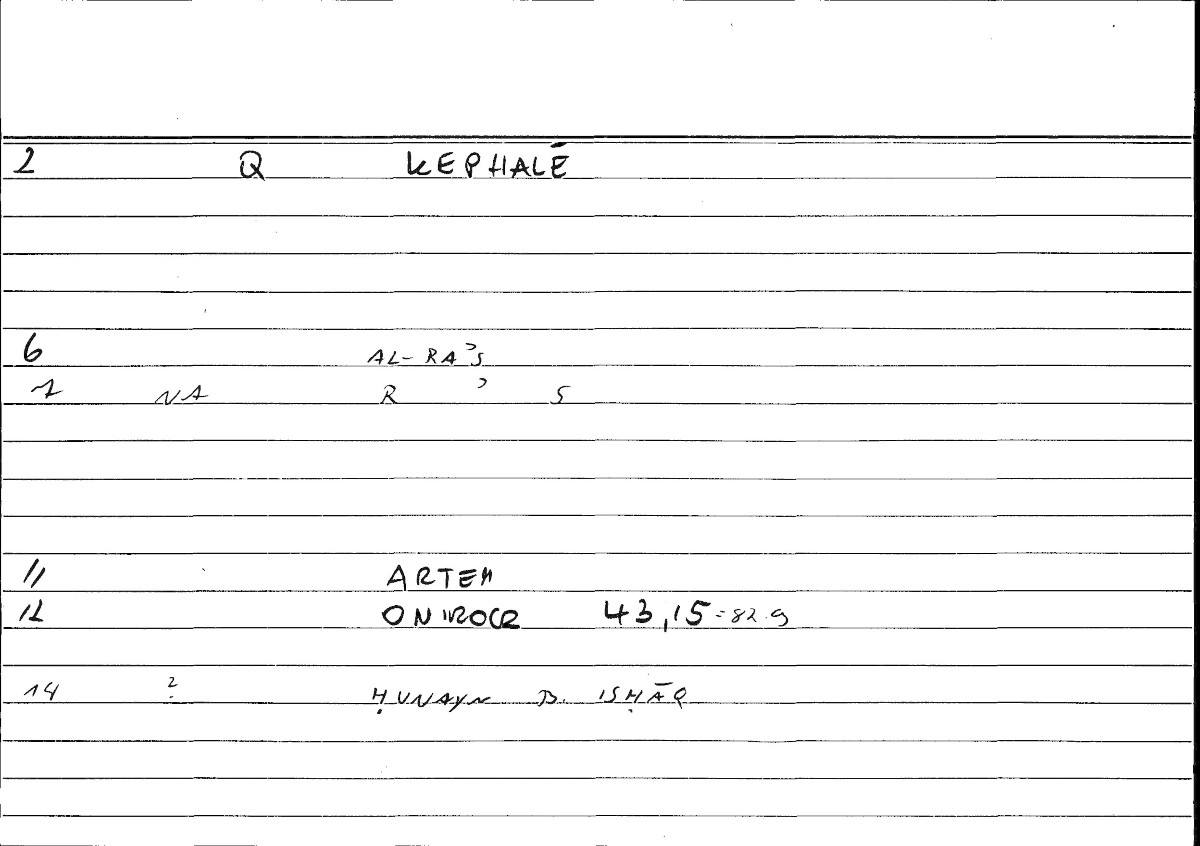 2 Q KEPHALĒ
6 AL-RAʾS
7 NA R ʾ S
11 ARTEM
12 ONIROCR 43,15=82.9
14 2 ḤUNAYN B. ISḤĀQ